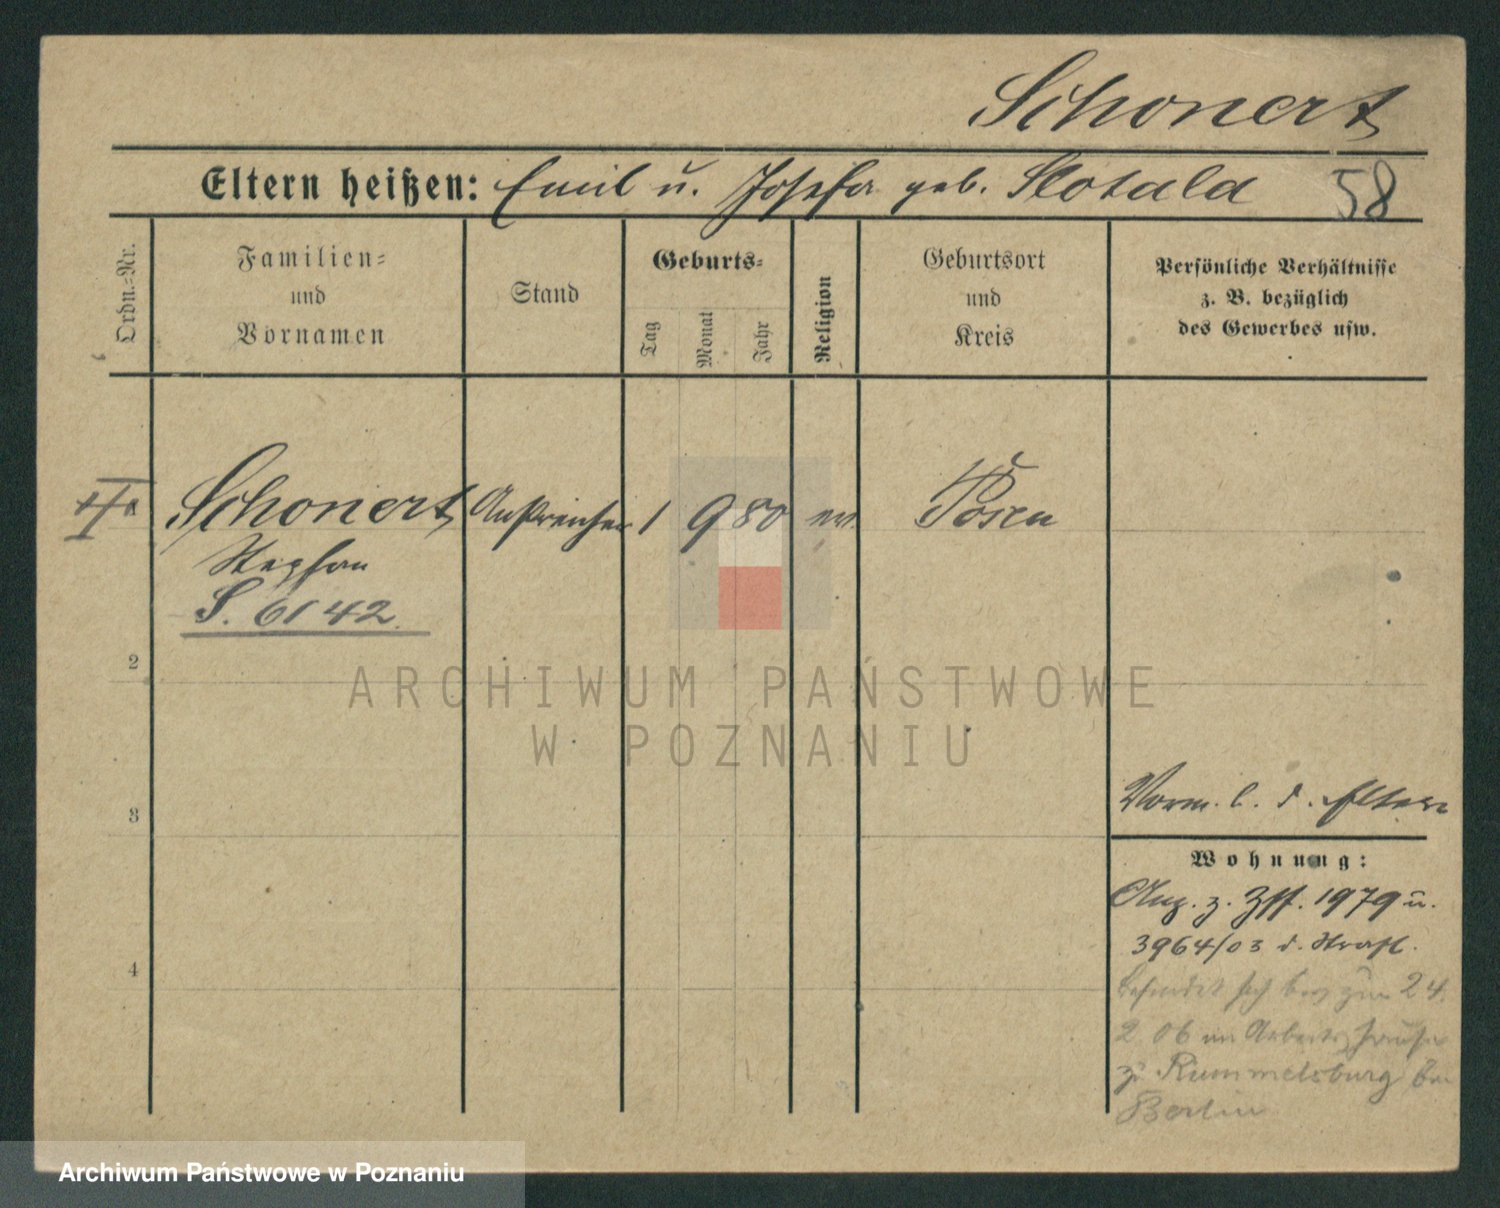 Schonert
Eltern heißen: Emil u. Josefa geb. Slotala
58
Ordn.-Nr.
Familien-
und
Vornamen
Stand
Geburts-
Tag
Monat
Jahr
Religion
Geburtsort
und
Kreis
Persönliche Verhältnisse
z. B. bezüglich
des Gewerbes usw.
Schonert Anstreicher 1 9 80 ev. Posen
Stephan
S. 6142
2
3
4
Vorm. b. d. Eltern
Wohnung:
Anz. z. Zff. 1979 u.
3964/03 d. Strafl.
befindet sich bis zum 24.
2. 06 im Arbeitshause
zu Rummelsburg bei
Berlin
ARCHIWUM PAŃSTWOWE
W POZNANIU
Archiwum Państwowe w Poznaniu